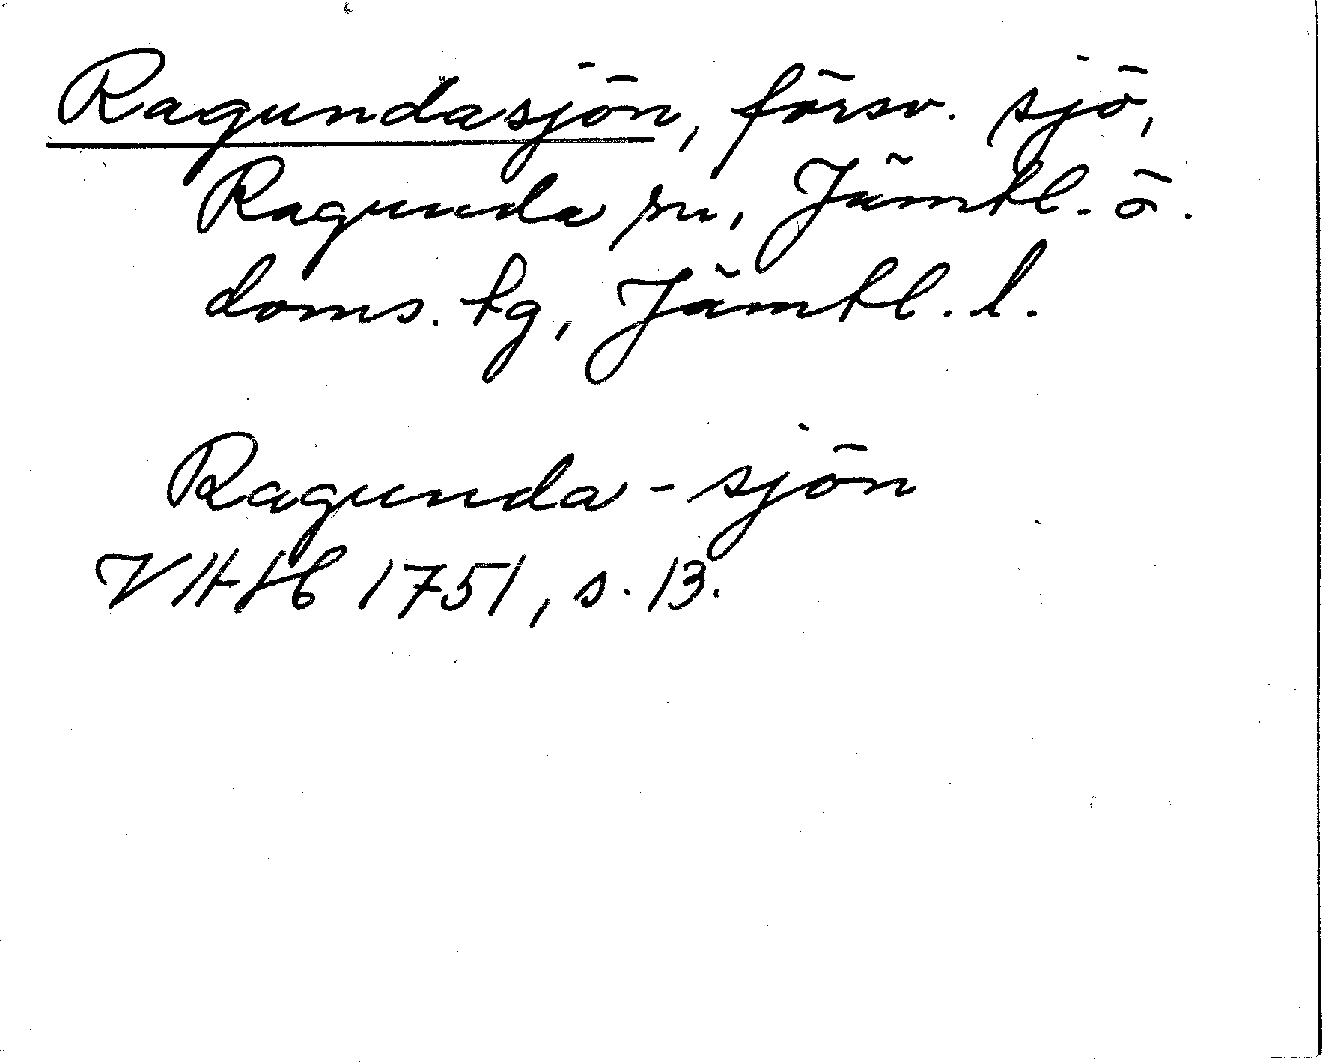 Ragundasjön, försv. sjö,
Ragunda sn, Jämtl. ö.
doms. tg, Jämtl. l.
Ragunda-sjön
VHHb 1751, s. 13.